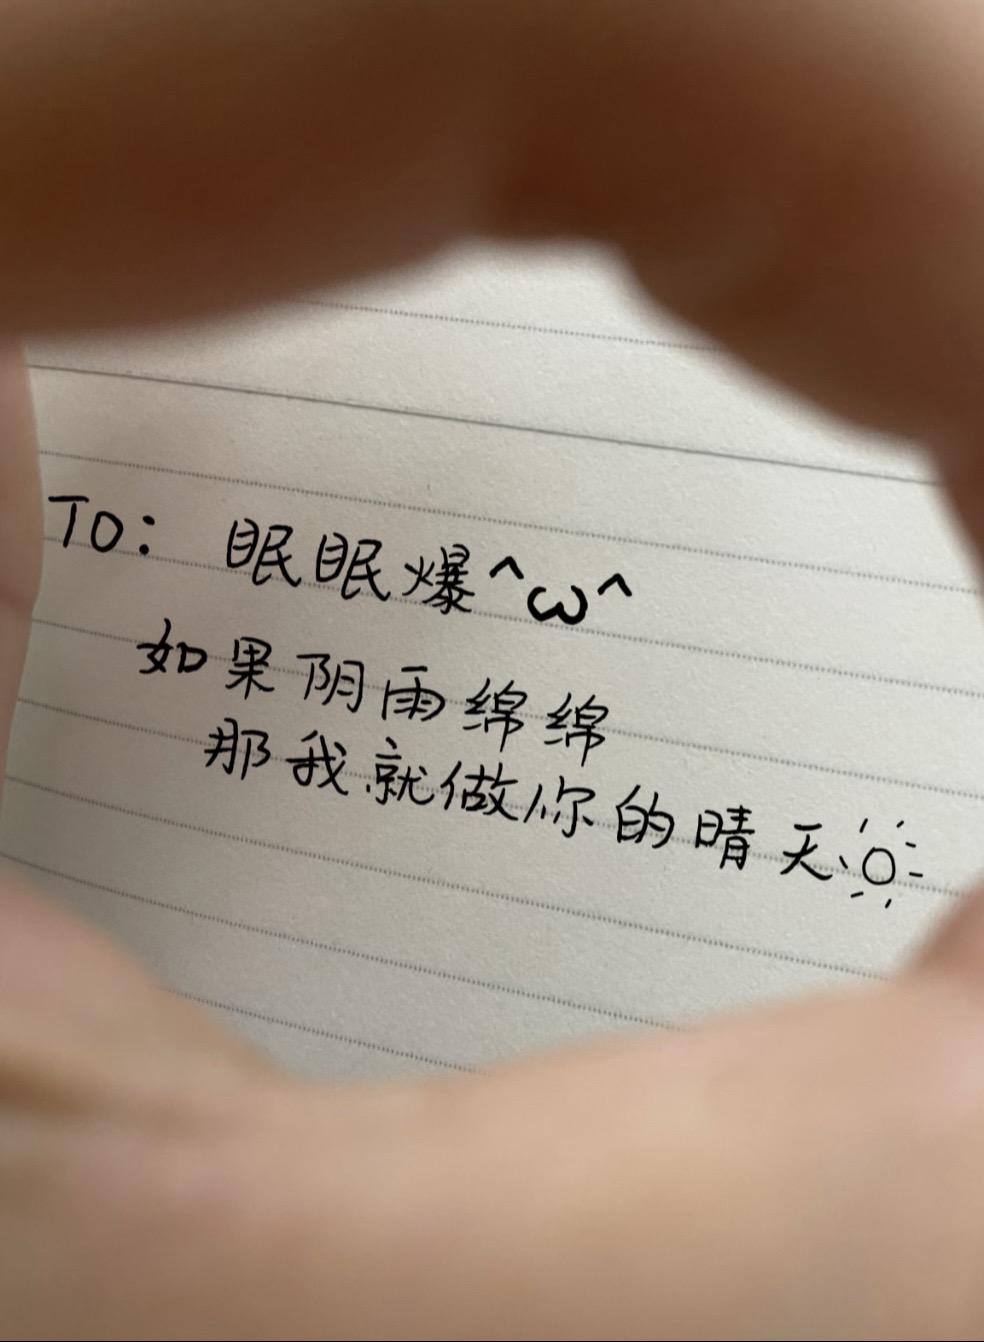 TO: 眠眠爆^ω^
如果阴雨绵绵
那我就做你的晴天